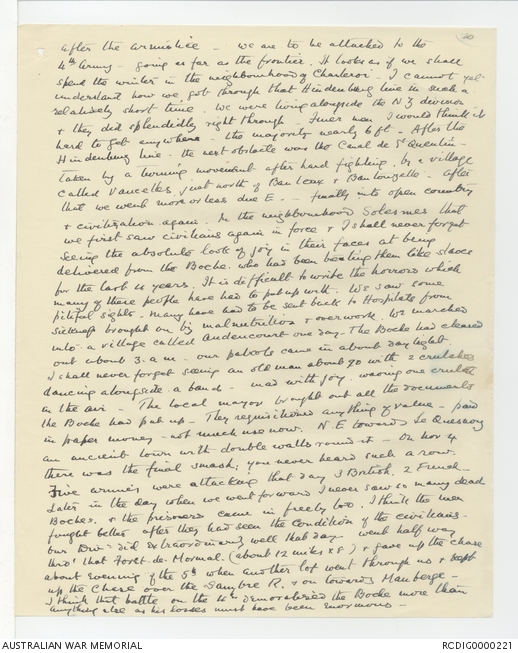 20
after the armistice - we are to be attached to the
4th Army - going as far as the frontier. It looks as if we shall
spend the winter in the neighbourhood of Charleroi - I cannot yet
understand how we got through that Hindenburg line in such a
relatively short time - we were living alongside the NZ division
& they did splendidly right through - Finer men I would think it
hard to get anywhere - the majority nearly 6 ft. - After the
Hindenburg line. the next obstacle was the Canal de St Quentin -
taken by a turning movement after hard fighting. by a village
called Vaucelles, just north of Banteux & Bantouzelle - after
that we went more or less due E. - finally into open country
& civilization again. In the neighbourhood Solesmes that
we first saw civilians again in force & I shall never forget
seeing the absolute look of joy in their faces at being
delivered from the Boche. who had been beating them like slaves
for the last 4 years. It is difficult to write the horrors which
many of these people have had to put up with. We saw some
pitiful sights - many have had to be sent back to Hospitals from
sickness brought on by malnutrition & overwork. We marched
into a village called Audencourt one day. The Boche had cleared
out about 3. a.m - our patrols came in about daylight.
I shall never forget seeing an old man about 90 with 2 crutches
dancing alongside a band - mad with joy waving one crutch
in the air - The local mayor brought out all the documents
the Boche had put up - They requisitioned anything of value - paid
in paper money - not much use now. N.E towards Le Quesnoy
an ancient town with double walls round it - On Nov 4
there was the final smash; you never heard such a row.
Five armies were attacking that day 3 British. 2 French -
Later in the day when we went forward I never saw so many dead
Boches. & the prisoners came in freely too. I think the men
fought better after they had seen the condition of the civilians -
Our Div: did extraordinarily well that day went half way
thro' that Foret de Mormal. (about 12 miles x 8) & gave up the chase
about evening of the 5th when another lot went through us & kept
up the chase over the Sambre R. & on towards Mauberge -
I think that battle on the 4th demoralised the Boche more than
anything else as his losses must have been enormous -
AUSTRALIAN WAR MEMORIAL
RCDIG0000221